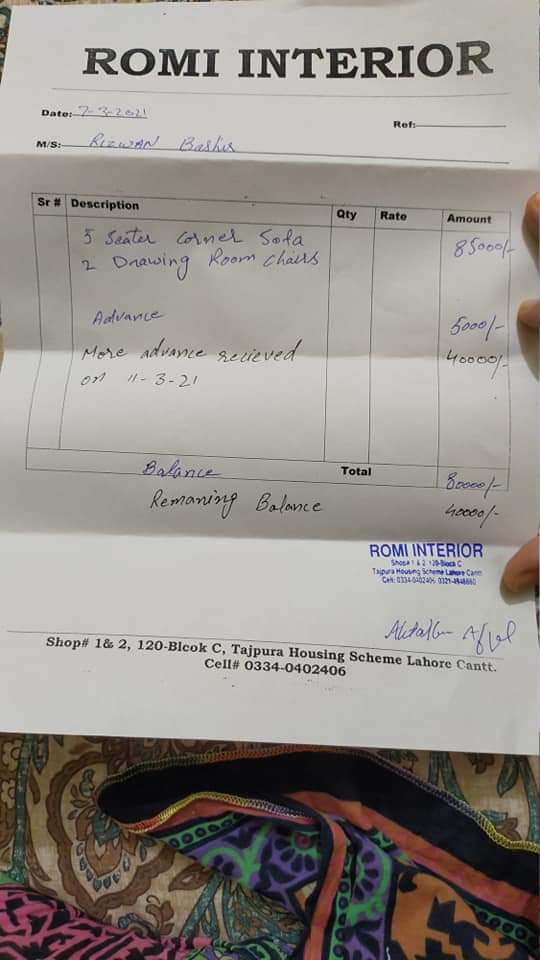 ROMI INTERIOR
Date: 7-3-2021
Ref:
M/S: RIZWAN Bashir
Sr # Description Qty Rate Amount
5 Seater Corner Sofa 85000/-
2 Drawing Room Chairs
Advance 5000/-
More advance recieved 40000/-
on 11-3-21
Balance Total 80000/-
Remaning Balance 40000/-
ROMI INTERIOR
Shop# 1 & 2, 120-Block C
Tajpura Housing Scheme Lahore Cantt
Cell: 0334-0402406
Shop# 1& 2, 120-Blcok C, Tajpura Housing Scheme Lahore Cantt.
Cell# 0334-0402406